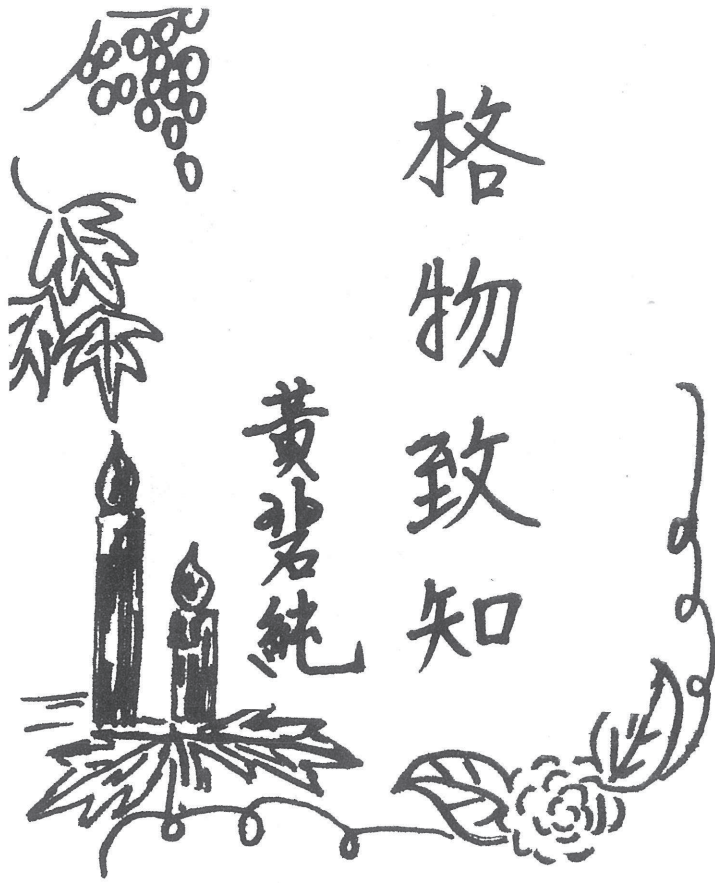 格物致知
黃碧純